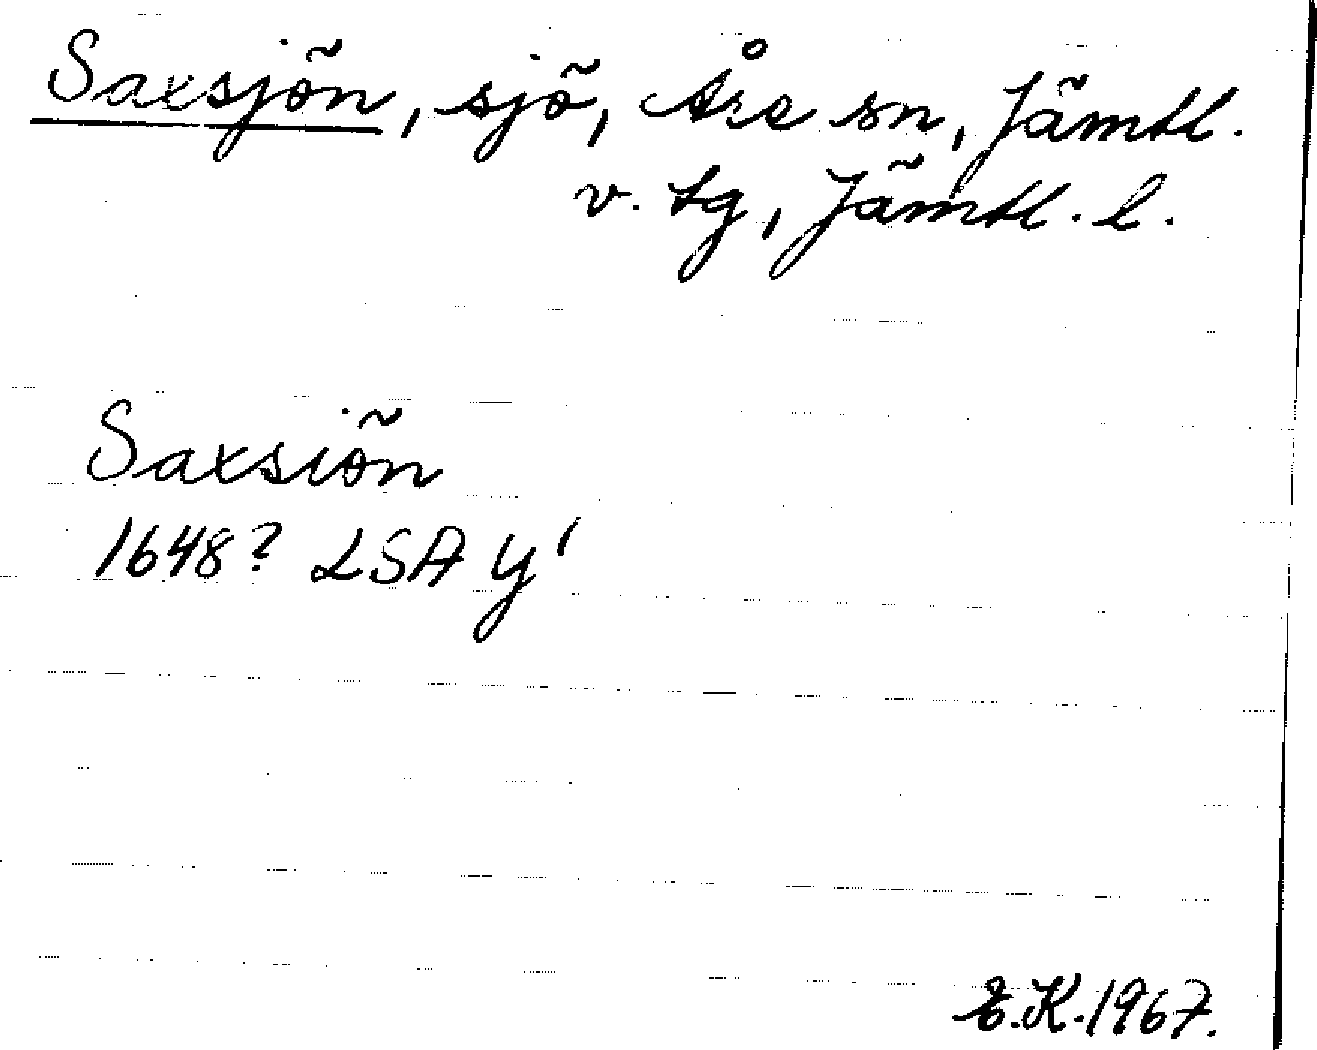 Saxsjön, sjö, Åre sn, Jämtl.
v. tg, Jämtl. l.
Saxsiön
1648? LSA Y¹
E.K. 1967.